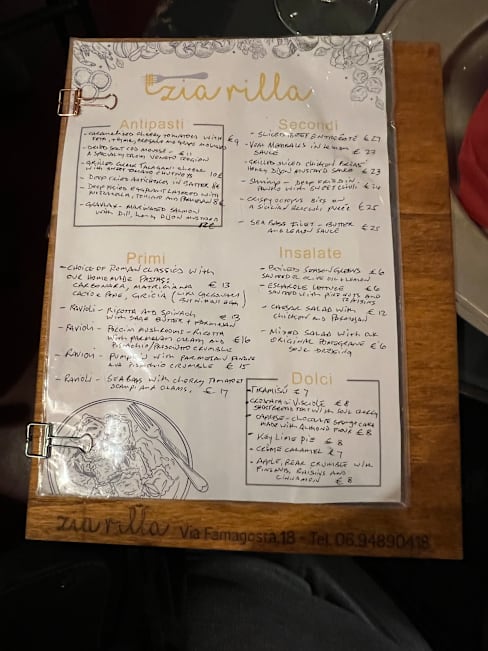 zia rilla
Antipasti
- CARAMELIZED CHERRY TOMATOES WITH € 9
FETA, THYME, OREGANO AND
- DRIED SALT COD MOUSSE - € 11
A SPECIALTY FROM VENETO REGION
- GRILLED GREEK TALAGANI CHEESE
WITH SWEET TOMATO CHUTNEYS 10€
- DEEP FRIED ARTICHOKES IN BATTER 8€
- DEEP FRIED EGGPLANT CLASSIC WITH
MOZZARELLA, TOMATO AND PARMESAN 8€
- GRAVLAX - MARINATED SALMON
WITH DILL, HONEY DIJON MUSTARD
12€
Primi
- CHOICE OF ROMAN CLASSICS WITH
OUR HOMEMADE PASTAS:
CARBONARA, MATRICIANA € 13
CACIO E PEPE, GRICIA (LIKE CARBONARA
BUT W/O EGG)
- RAVIOLI - RICOTTA AND SPINACH, € 13
WITH SAGE BUTTER & PARMESAN
- RAVIOLI - PORCINI MUSHROOMS - RICOTTA
WITH PARMESAN CREAM AND € 16
PISTACHIO/PROSCIUTTO CRUMBLE
- RAVIOLI - PUMPKIN WITH PARMESAN FONDUE
AND PISTACHIO CRUMBLE € 15
- RAVIOLI - SEA BASS WITH CHERRY TOMATOES
SCAMPI AND CLAMS, € 17
Secondi
- SLICED BEEF ENTRECOTE € 27
- VEAL MEATBALLS IN LEMON
SAUCE € 23
- GRILLED SLICED CHICKEN BREAST
HONEY DIJON MUSTARD SAUCE € 23
- SHRIMPS - DEEP FRIED IN
PANKO WITH SWEET CHILLI € 24
- CRISPY OCTOPUS BITES ON
A SICILIAN BROCCOLI PUREE € 25
- SEA BASS FILET - BUTTER € 25
AND LEMON SAUCE
Insalate
- BOILED SEASON GREENS € 6
SAUTEED OLIVE OIL & LEMON
- ESCAROLE LETTUCE € 6
SAUTEED WITH PINE NUTS AND
RAISINS
- CAESAR SALAD WITH € 12
CHICKEN AND PARMESAN
- MIXED SALAD WITH OUR
ORIGINAL POMEGRANATE € 6
SOUR DRESSING
Dolci
- TIRAMISÙ € 7
- CROSTATA DI VISCIOLE € 8
SHORTBREAD TART WITH SOUR CHERRY
- CAPRESE - CHOCOLATE SPONGE CAKE
MADE WITH ALMOND FLOUR € 8
- KEY LIME PIE € 8
- CRÈME CARAMEL € 7
- APPLE, PEAR CRUMBLE WITH
PINENUTS, RAISINS AND
CINNAMON € 8
zia rilla Via Famagosta, 18 - Tel. 06.94890418